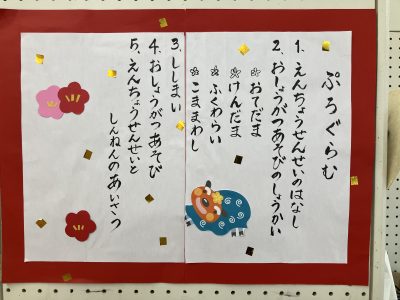 ぷろぐらむ
1、えんちょうせんせいのはなし
2、おしょうがつあそびのしょうかい
☆おてだま
☆けんだま
☆ふくわらい
☆こままわし
3、ししまい
4、おしょうがつあそび
5、えんちょうせんせいと
しんねんのあいさつ